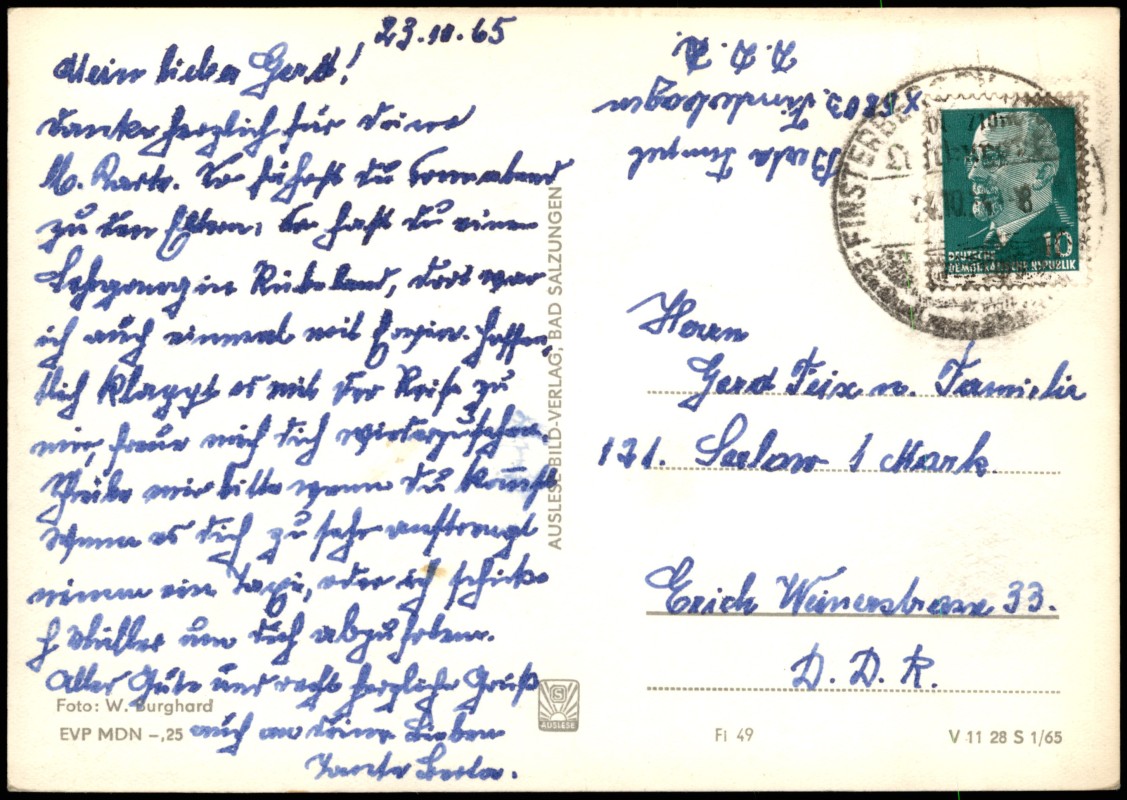 23.10.65
Mein lieber Gerd!
danke herzlich für deine
M. Karte. So fuhrst du Sonnabend
zu den Eltern: So hast du einen
Lehrgang in Rübeland, dort war
ich auch einmal mit Erwin. hoffen,
tlich klappt es mit der Reise zu
mir, freue mich dich wiederzusehen.
Schreibe mir bitte wann du kommst
Wenn es dich zu sehr anstrengt
nimm ein Taxi, oder ich schicke
H Müller um dich abzuholen.
Alles Gute und recht herzliche Grüße
auch an deine Lieben
Tante Berta.
Foto: W. Burghard
EVP MDN –,25
AUSLESE BILD-VERLAG, BAD SALZUNGEN
S
AUSLESE
Berta
X 7803. Finsterbergen
D. D. R.
FINSTERBERGEN
10
DEUTSCHE
DEMOKRATISCHE REPUBLIK
Herrn
Gerd Feix u. Familie
121. Seelow 1 Mark
Erich Weinerstrasse 33.
D. D. R.
Fi 49
V 11 28 S 1/65